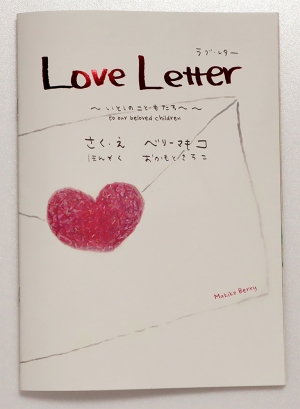 ラブ・レター
Love Letter
～いとしのこどもたちへ～
to our beloved children
さく・え ベリーマキコ
ほんやく おかもとさちこ
Makiko Berry